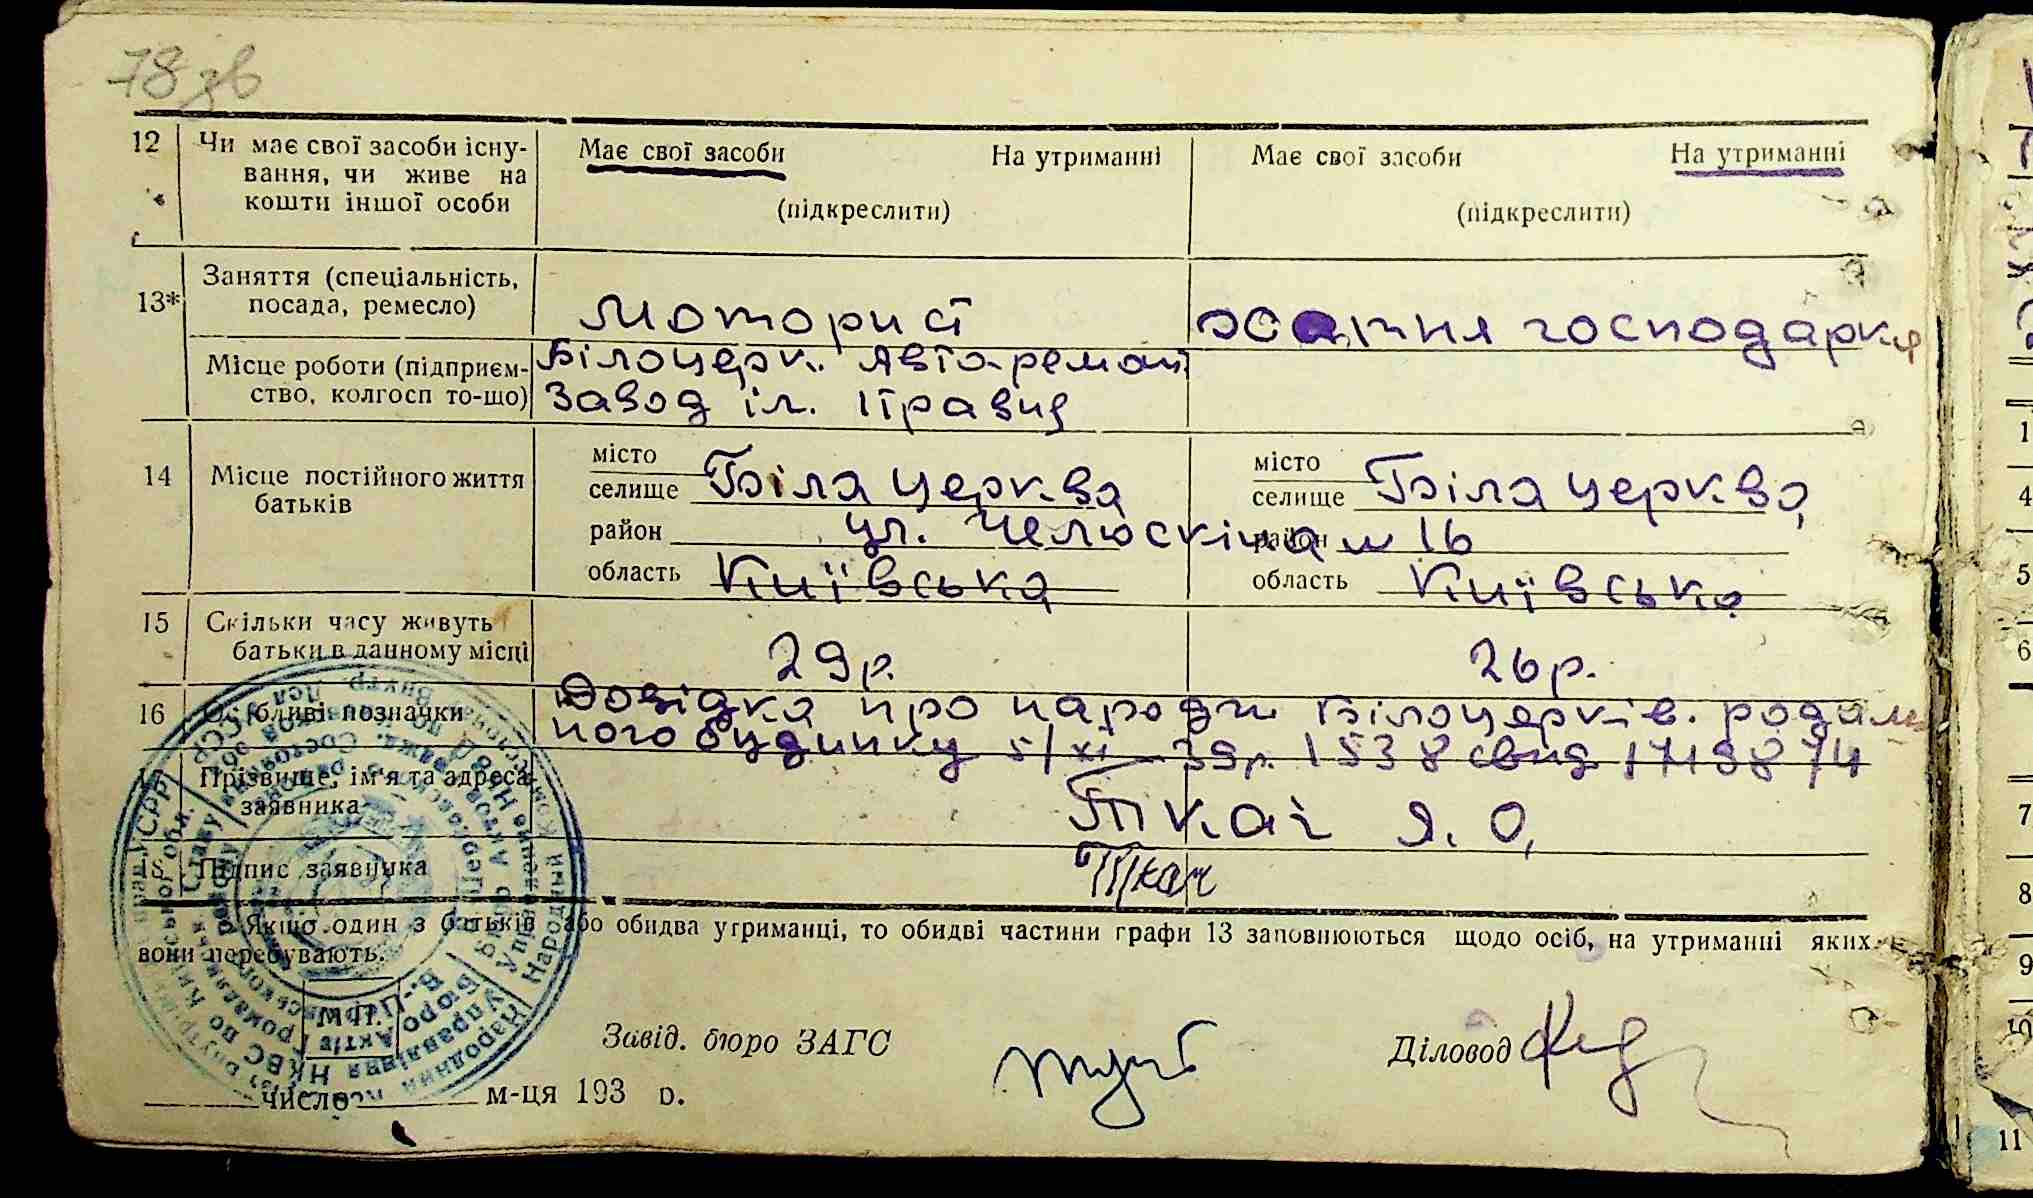 78 зв
12 Чи має свої засоби існу- Має свої засоби На утриманні Має свої засоби На утриманні
вання, чи живе на
кошти іншої особи (підкреслити) (підкреслити)
13* Заняття (спеціальність,
посада, ремесло) моторист хатня господарка
Місце роботи (підприєм- Білоцерк. Авто-ремонт
ство, колгосп то-що) завод ім.
14 Місце постійного життя
батьків
місто місто
селище Біла церква селище Біла церква,
район ул. Челюскіна № 16 район
область Київська область Київська
15 Скільки часу живуть
батьки в данному місці 29р. 26р.
16 Особливі позначки Довідка про народж. Білоцерків. родиль
ного будинку 5/XI 39р. 1538 свид 1719874
17 Прізвище, ім'я та адреса
заявника Ткач Я. О.
18 Підпис заявника Ткач
Якщо один з батьків або обидва утриманці, то обидві частини графи 13 заповнюються щодо осіб, на утриманні яких
вони перебувають.
М.П.
Завід. бюро ЗАГС Діловод
число м-ця 193 р.
1
4
5
6
7
8
9
10
11